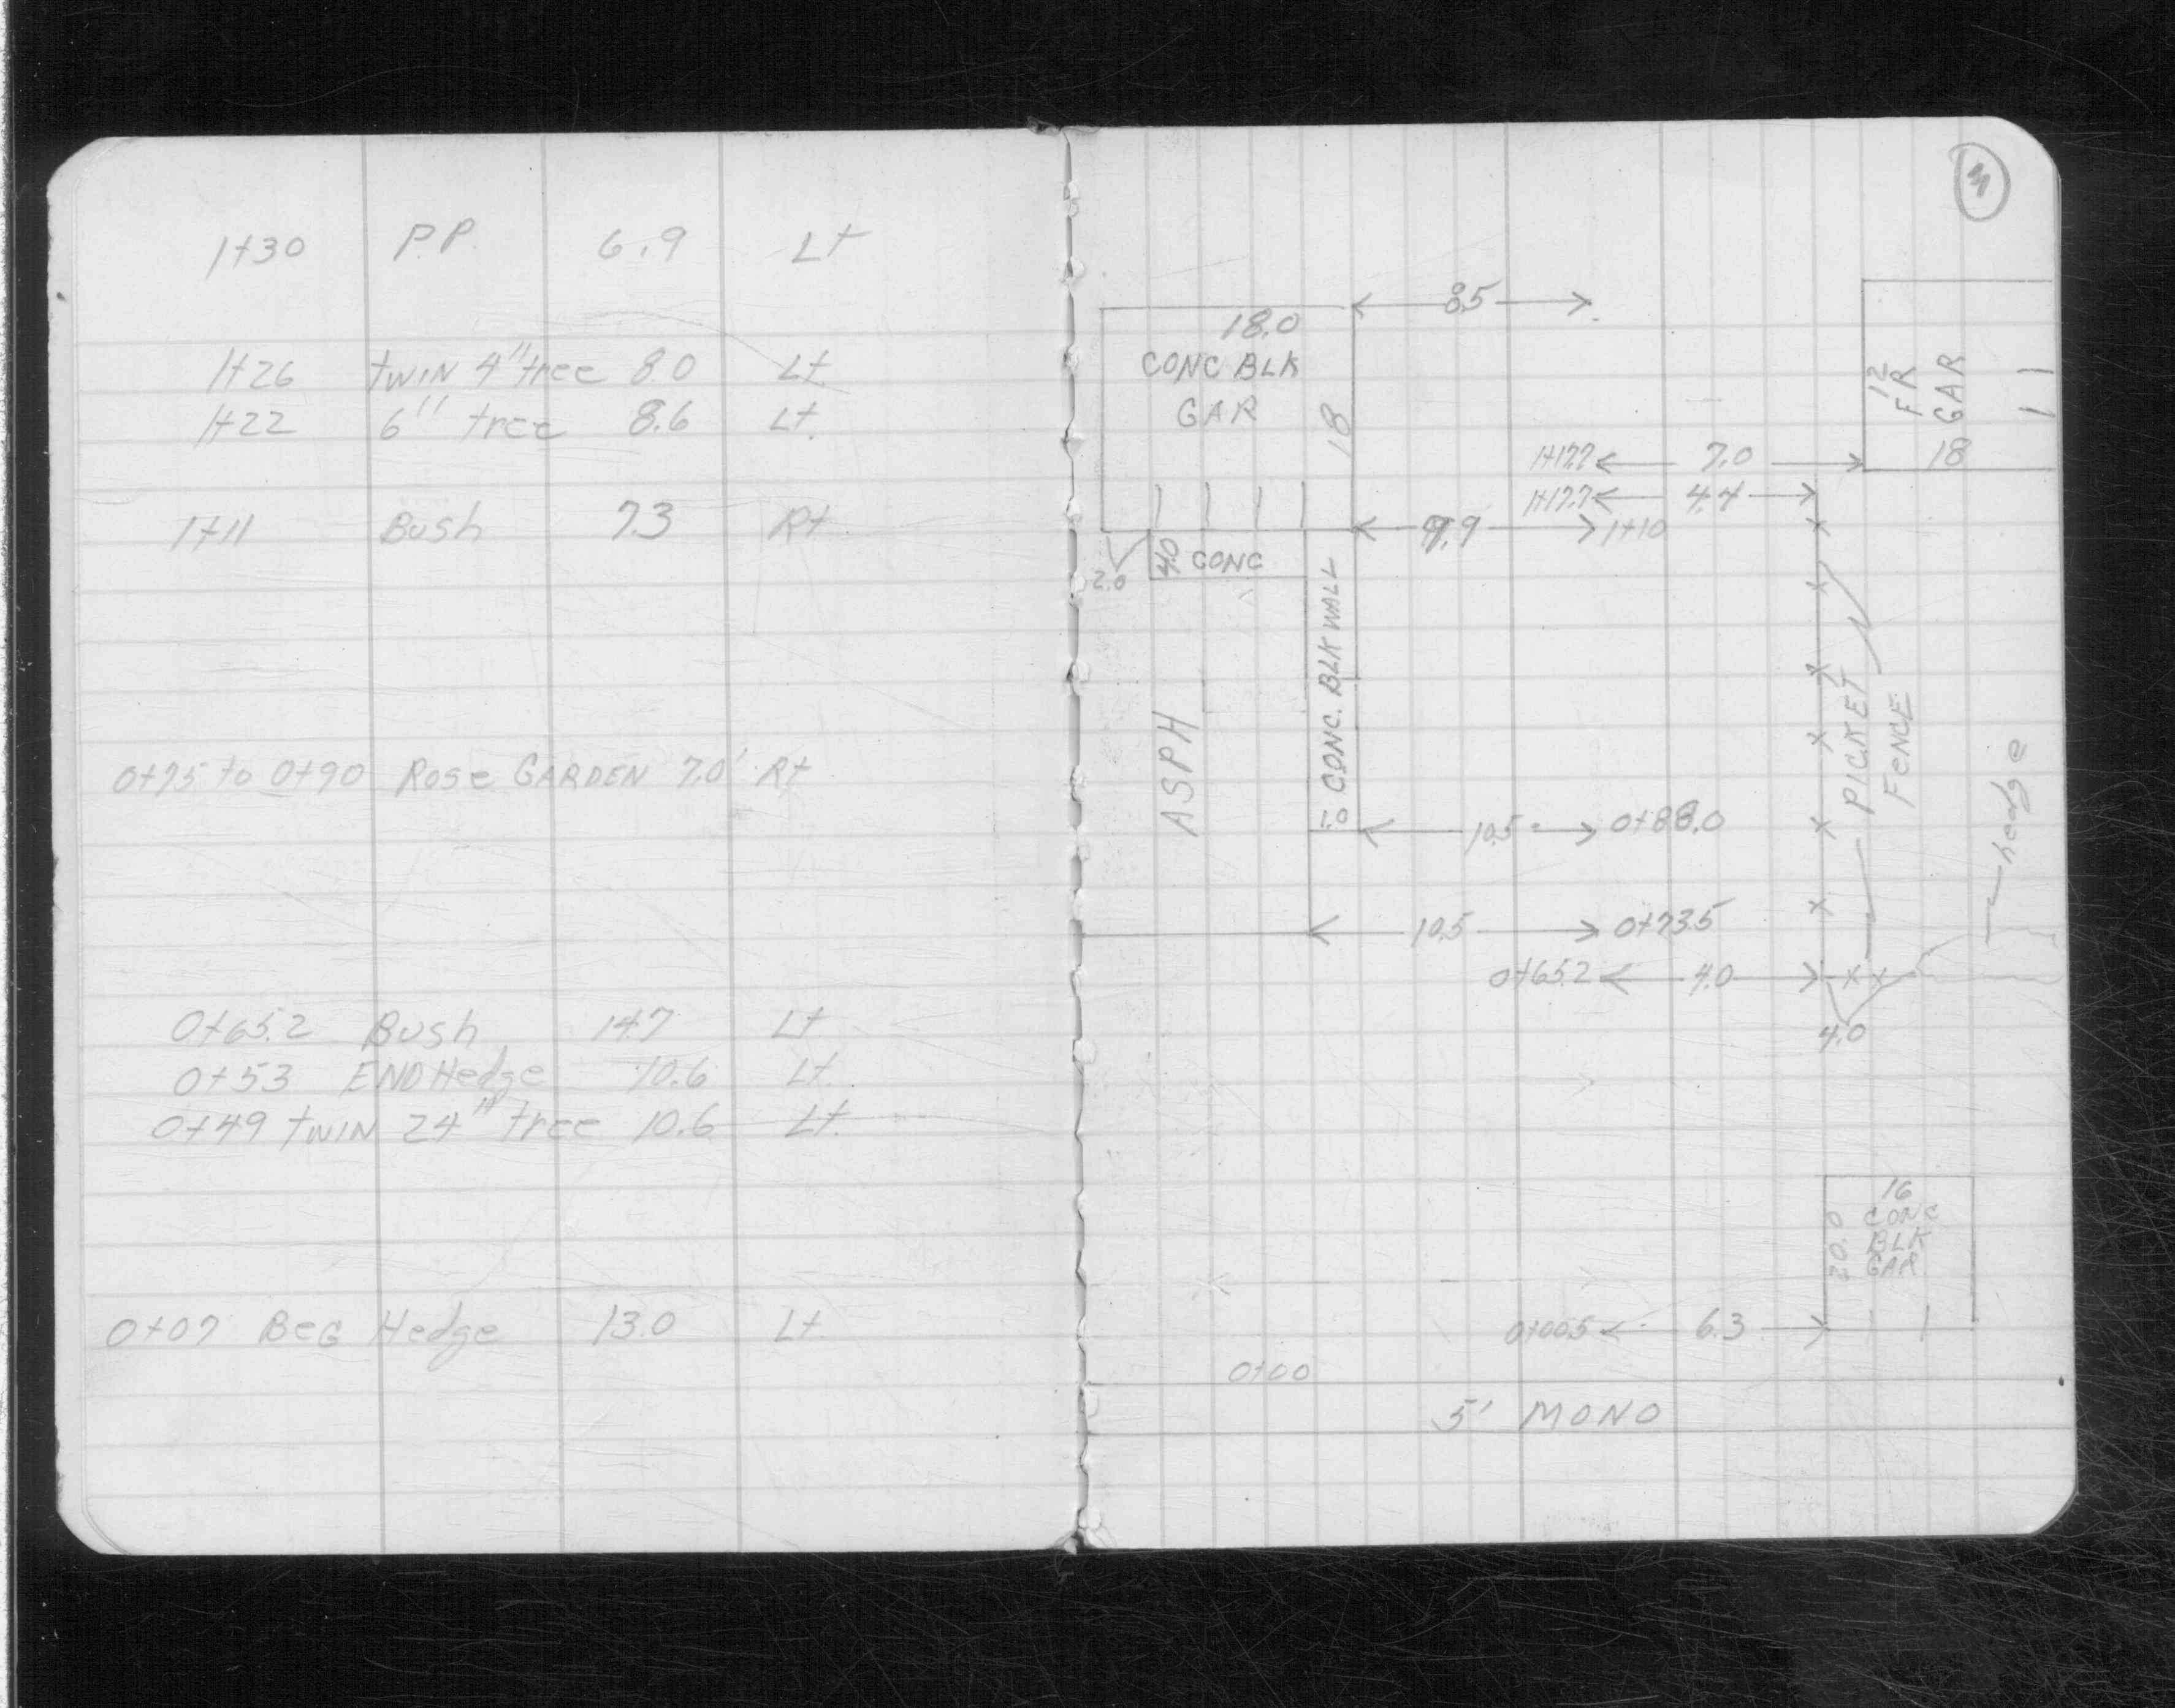 1+30 P.P. 6.9 Lt
1+26 twin 4" tree 8.0 Lt.
1+22 6" tree 8.6 Lt.
1+11 Bush 7.3 Rt.
0+75 to 0+90 Rose GARDEN 7.0' Rt
0+65.2 Bush 14.7 Lt
0+53 END Hedge 10.6 Lt.
0+49 twin 24" tree 10.6 Lt.
0+07 BEG Hedge 13.0 Lt.
3
8.5
18.0
CONC BLK
GAR
18
12
FR
GAR
18
1+17.7 7.0
1+17.7 4.4
9.9 1+10
2.0
4.0 CONC
CONC. BLK WALL
1.0
ASPH
PICKET
FENCE
hedge
10.5 0+88.0
10.5 0+73.5
0+65.2 4.0
4.0
16
CONC
BLK
GAR
20.0
0+00.5 6.3
0+00
5' MONO